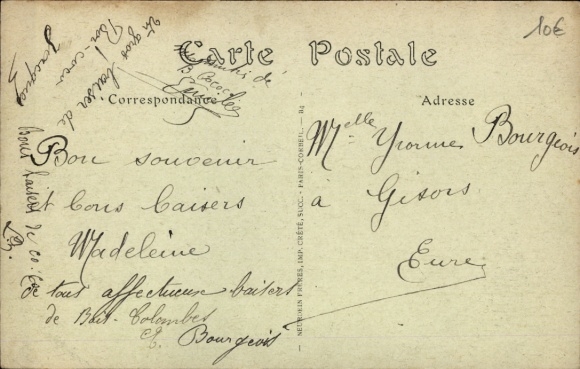 10€
Carte Postale
Correspondance
Adresse
Un gros baiser de
Jacques
Bon souvenir
et bons baisers
Madeleine
de tous affectueux baisers
de Bois-Colombes
E. Bourgeois
Bons baisers de
NEURDEIN FRÈRES, IMP. CRÉTÉ, SUCC. - PARIS-CORBEIL.
Melle Yvonne Bourgeois
à Gisors
Eure